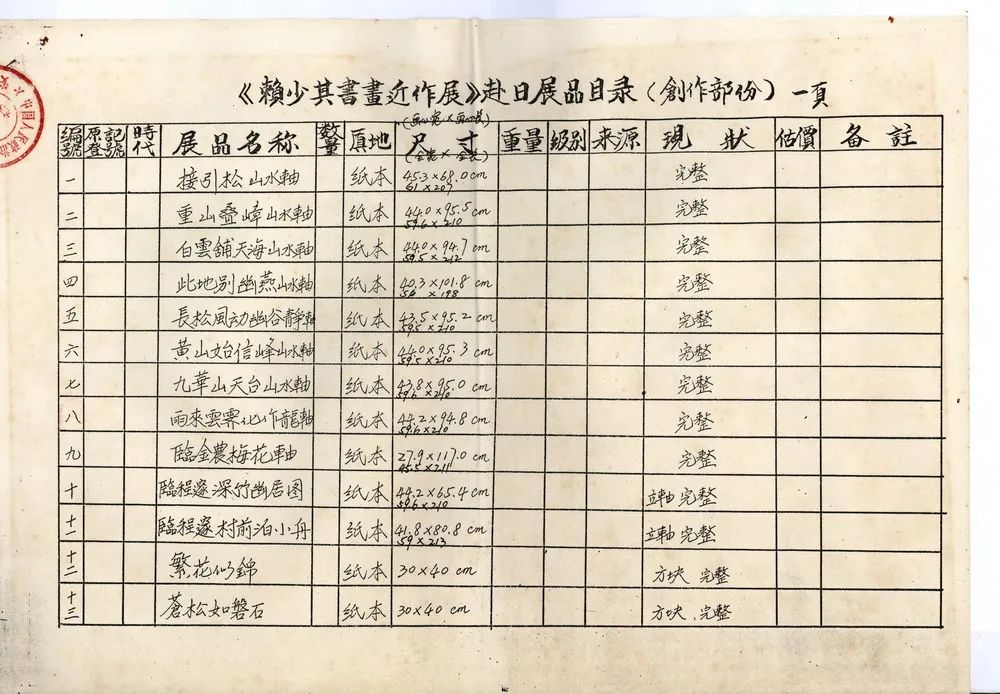 《賴少其書畫近作展》赴日展品目录（創作部份） 一頁
編號 原登記號 時代 展品名称 数量 質地 尺寸（画心宽×画心长）（全宽×全长） 重量 级别 来源 現狀 估價 备註
一 接引松山水軸 纸本 45.3×68.0cm 61×207 完整
二 重山叠嶂山水軸 纸本 44.0×95.5cm 59.6×210 完整
三 白雲舖天海山水軸 纸本 44.0×94.7cm 59.5×212 完整
四 此地别幽燕山水軸 纸本 40.3×101.8cm 56×198 完整
五 長松風动幽谷靜軸 纸本 43.5×95.2cm 59.5×210 完整
六 黄山始信峰山水軸 纸本 44.0×95.3cm 59.5×210 完整
七 九華山天台山水軸 纸本 43.8×95.0cm 59.6×210 完整
八 雨來雲霁化作龍軸 纸本 44.2×94.8cm 59.6×210 完整
九 臨金農梅花軸 纸本 27.9×117.0cm 45.5×211 完整
十 臨程邃深竹幽居图 纸本 44.2×65.4cm 59.6×210 立軸 完整
十一 臨程邃村前泊小舟 纸本 41.8×80.8cm 59×213 立軸 完整
十二 繁花似錦 纸本 30×40cm 方块 完整
十三 蒼松如磐石 纸本 30×40cm 方块、完整